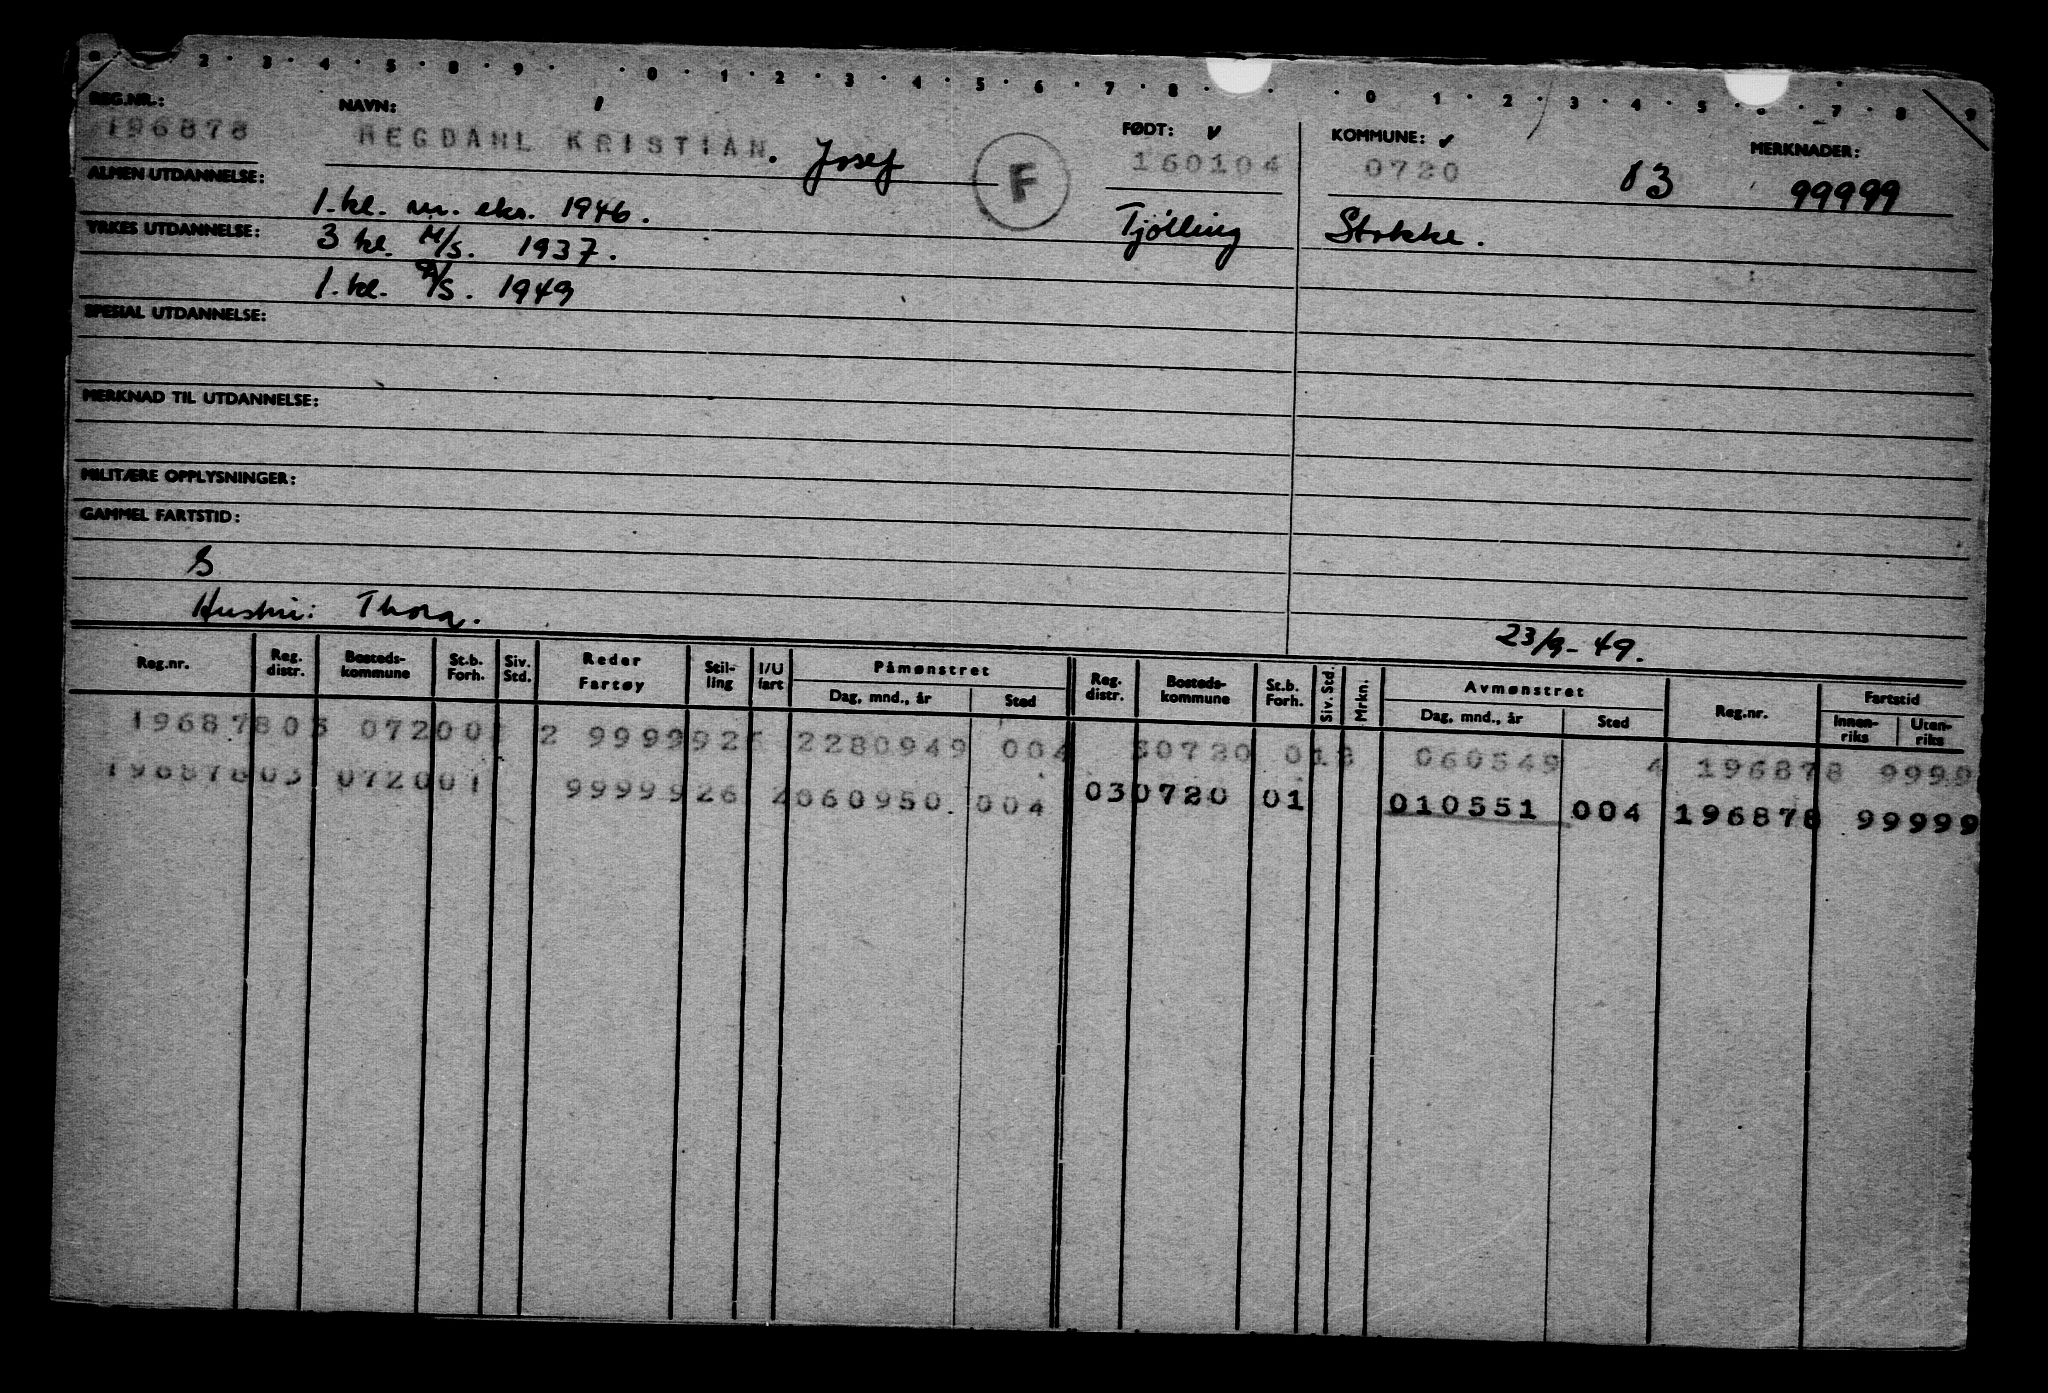 0 2 · 3 · 4 · 5 · 8 · 9 · · 0 · 1 · 2 · 3 · 4 · 5 · 6 · 7 · 8 · · · 0 1 · 2 · 3 · 4 · 5 · · 7 · 8 9
REG.NR.: NAVN: FØDT: ✓ KOMMUNE: ✓ MERKNADER:
196878 REGDAHL KRISTIAN. Josef F 160104 0720 83 99999
ALMEN UTDANNELSE: 1. kl. nr. eks. 1946. Tjølling Stokke.
YRKES UTDANNELSE: 3 kl. M/S. 1937.
1. kl. S. 1949
SPESIAL UTDANNELSE:
MERKNAD TIL UTDANNELSE:
MILITÆRE OPPLYSNINGER:
GAMMEL FARTSTID:
S
Hustru: Thora. 23/9-49.
Reg.nr. Reg. distr. Bosteds-kommune St.b. Forh. Siv. Std. Reder Fartøy Stil-ling I/U fart Påmønstret Dag, mnd., år Sted Reg. distr. Bosteds-kommune St.b. Forh. Siv. Std. Mrkn. Avmønstret Dag, mnd., år Sted Reg.nr. Fartstid Innen-riks Uten-riks
196878 03 0720 01 2 99999 26 2 280949 004 30720 018 060549 4 196878 9999
196878 03 0720 01 99999 26 2 060950. 004 03 0720 01 010551 004 196878 99999